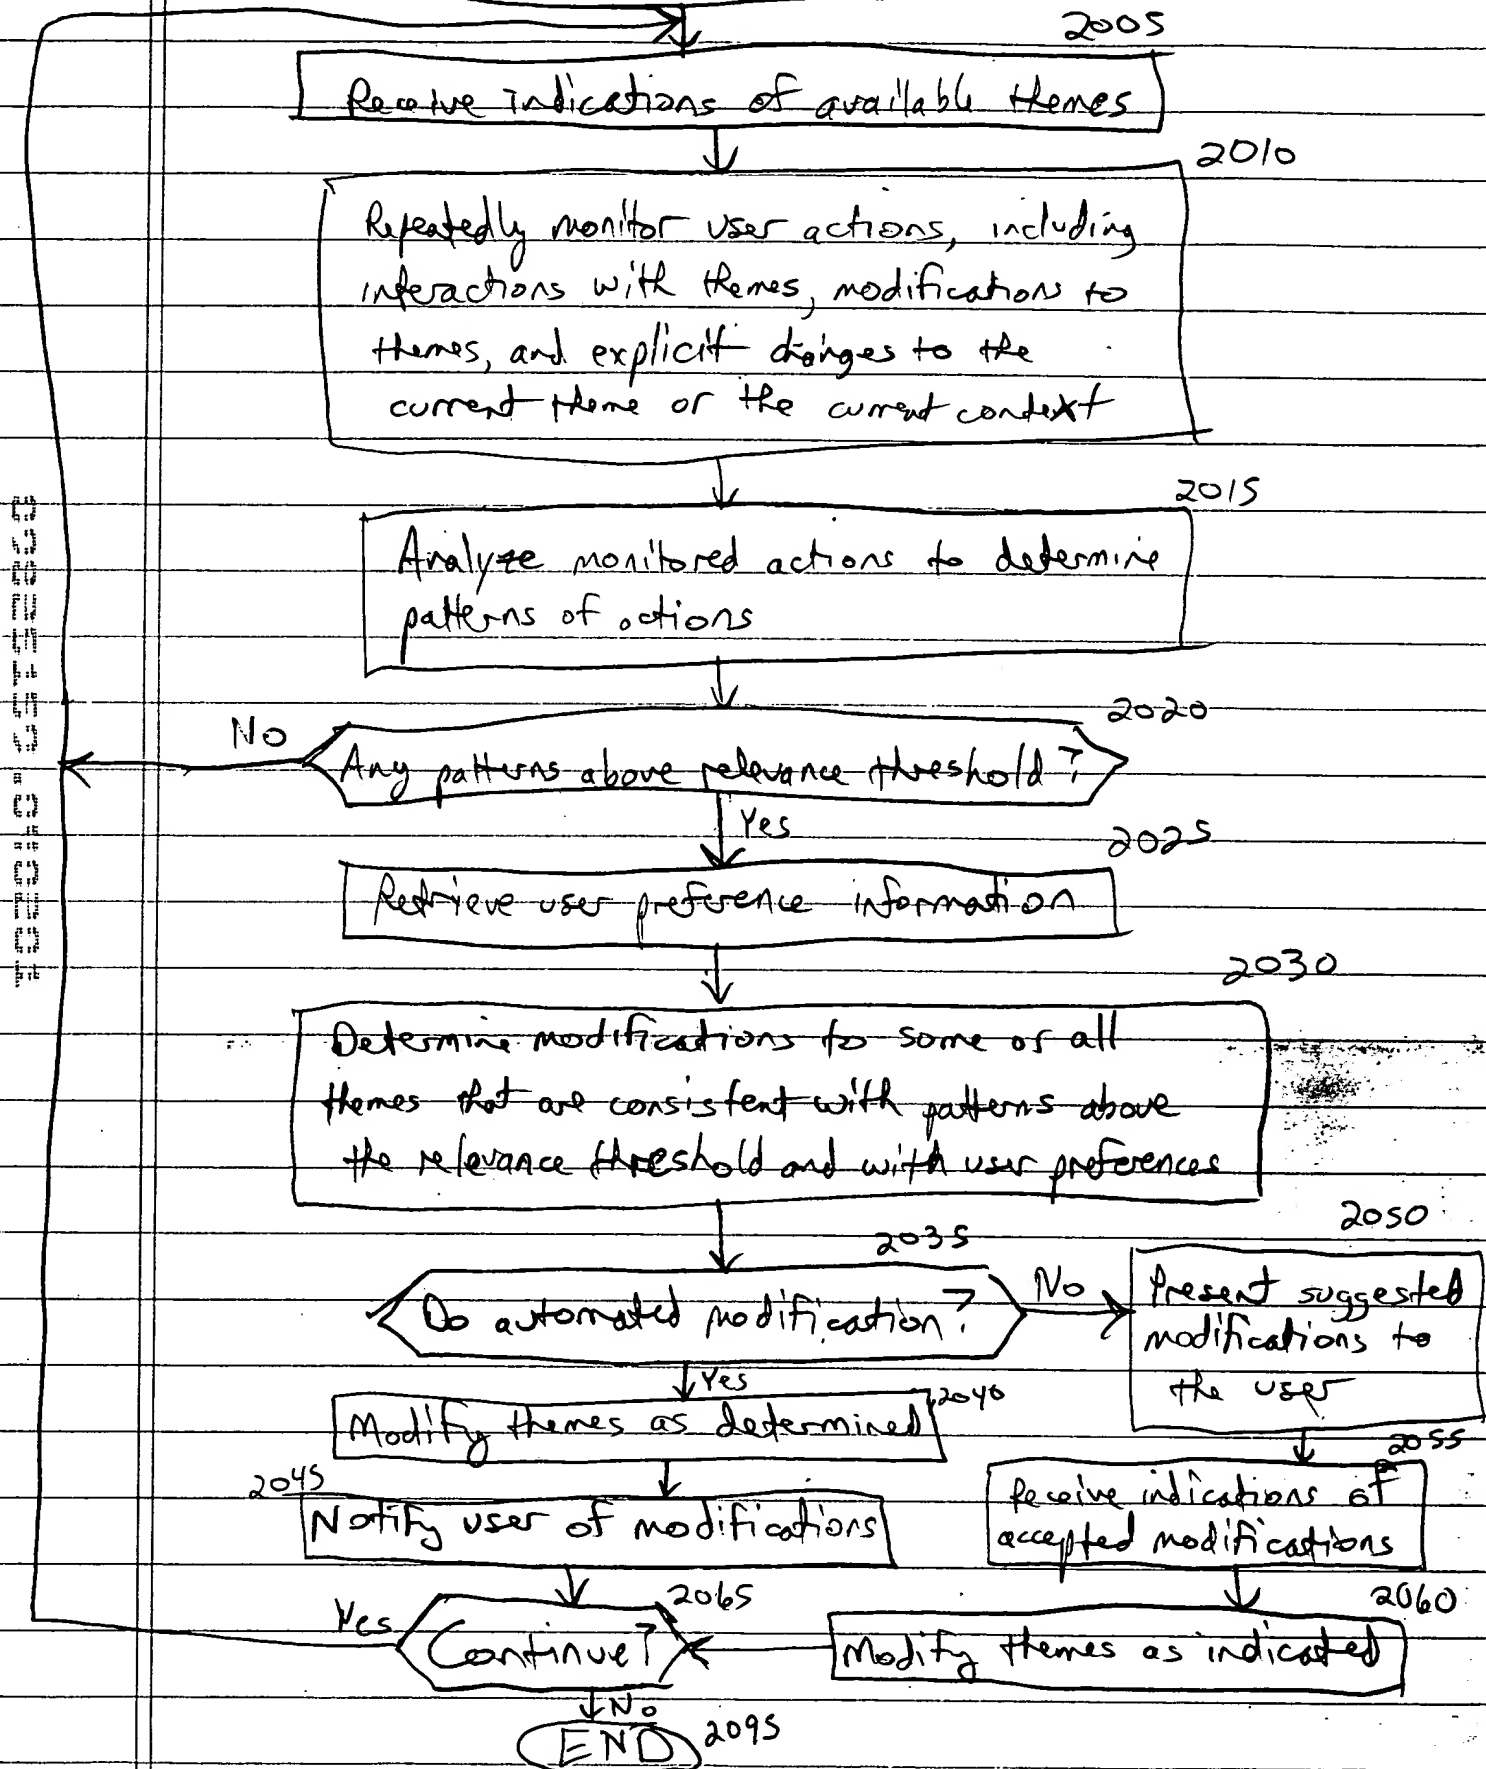 2005
Receive indications of available themes
2010
Repeatedly monitor user actions, including
interactions with themes, modifications to
themes, and explicit changes to the
current theme or the current context
2015
Analyze monitored actions to determine
patterns of actions
2020
No
Any patterns above relevance threshold?
Yes
2025
Retrieve user preference information
2030
Determine modifications to some or all
themes that are consistent with patterns above
the relevance threshold and with user preferences
2035
Do automated modification?
No
2050
Present suggested
modifications to
the user
Yes
2040
Modify themes as determined
2045
Notify user of modifications
2055
Receive indications of
accepted modifications
2060
Modify themes as indicated
2065
Continue?
Yes
No
END
2095